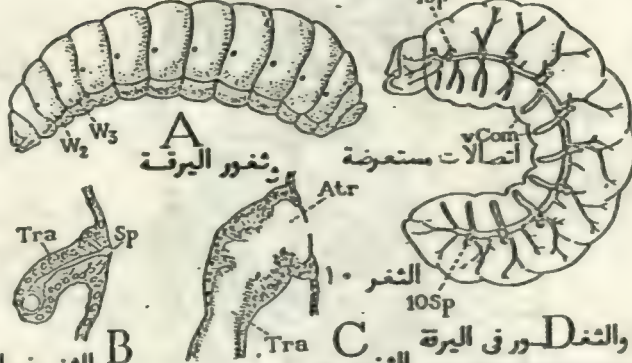 W₂
W₃
A
وثغور اليرقة
vCom
اتصالات مستعرضة
Tra
Sp
B
Atr
الثغر ١٠
Tra
C
10Sp
D
والثغور فى اليرقة